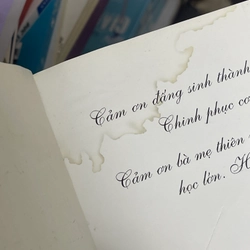 Cảm ơn đấng sinh thành
Chinh phục
Cảm ơn bà mẹ thiên
học lớn.